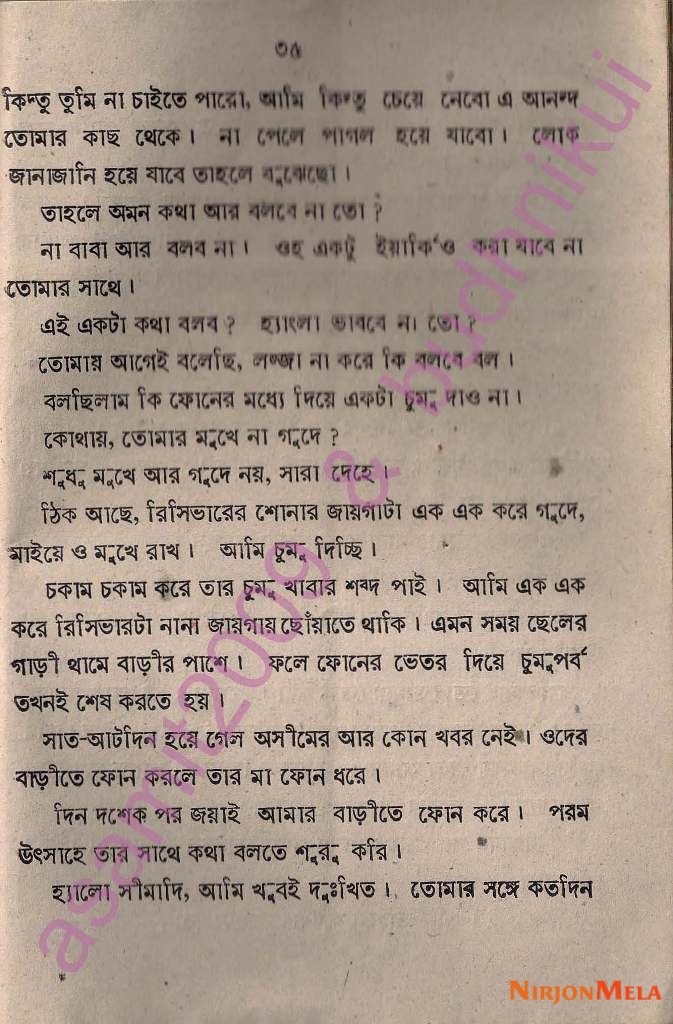 ৩৫
কিন্তু তুমি না চাইতে পারো, আমি কিন্তু চেয়ে নেবো এ আনন্দ
তোমার কাছ থেকে। না পেলে পাগল হয়ে যাবো। লোক
জানাজানি হয়ে যাবে তাহলে বুঝেছো।
তাহলে অমন কথা আর বলবে না তো ?
না বাবা আর বলব না। ওহ একটু ইয়ার্কিও করা যাবে না
তোমার সাথে।
এই একটা কথা বলব ? হ্যাংলা ভাববে না তো ?
তোমায় আগেই বলেছি, লজ্জা না করে কি বলবে বল।
বলছিলাম কি ফোনের মধ্যে দিয়ে একটা চুমু দাও না।
কোথায়, তোমার মুখে না গুদে ?
শুধু মুখে আর গুদে নয়, সারা দেহে।
ঠিক আছে, রিসিভারের শোনার জায়গাটা এক এক করে গুদে,
মাইয়ে ও মুখে রাখ। আমি চুমু দিচ্ছি।
চকাম চকাম করে তার চুমু খাবার শব্দ পাই। আমি এক এক
করে রিসিভারটা নানা জায়গায় ছোঁয়াতে থাকি। এমন সময় ছেলের
গাড়ী থামে বাড়ীর পাশে। ফলে ফোনের ভেতর দিয়ে চুমুপর্ব
তখনই শেষ করতে হয়।
সাত-আটদিন হয়ে গেল অসীমের আর কোন খবর নেই। ওদের
বাড়ীতে ফোন করলে তার মা ফোন ধরে।
দিন দশেক পর জয়াই আমার বাড়ীতে ফোন করে। পরম
উৎসাহে তার সাথে কথা বলতে শুরু করি।
হ্যালো সীমাদি, আমি খুবই দুঃখিত। তোমার সঙ্গে কতদিন
asamit2009 & budhhnikui
NIRJONMELA